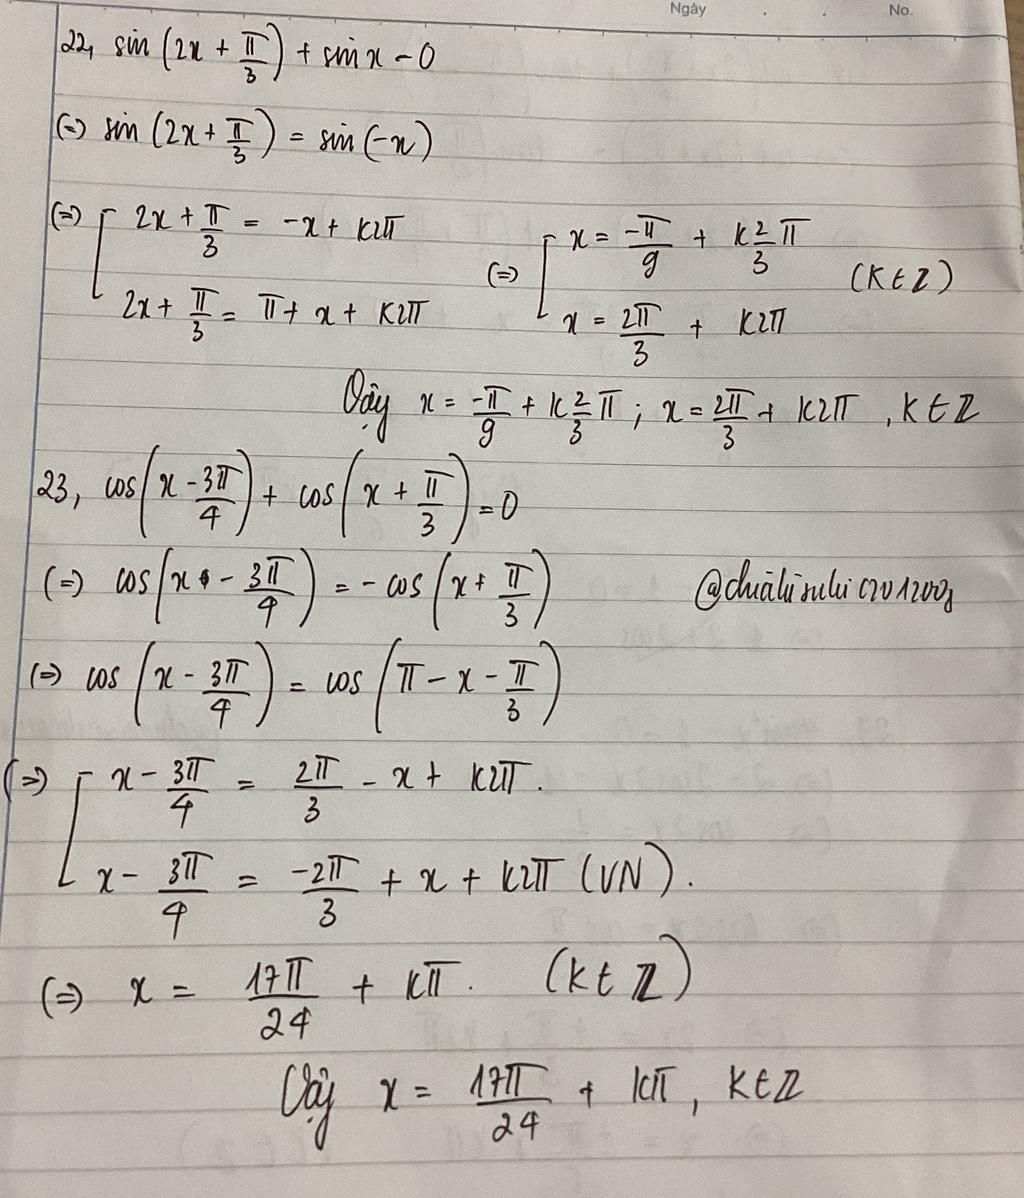 Ngày . . No.
22, sin (2x + π/3) + sin x - 0
(=) sin (2x + π/3) = sin (-x)
(=) [ 2x + π/3 = -x + k2π (=) [ x = -π/9 + k 2/3 π (k ∈ Z)
2x + π/3 = π + x + k2π x = 2π/3 + k2π
Vậy x = -π/9 + k 2/3 π ; x = 2π/3 + k2π , k ∈ Z
23, cos (x - 3π/4) + cos (x + π/3) = 0
(=) cos (x - 3π/4) = - cos (x + π/3)
(=) cos (x - 3π/4) = cos (π - x - π/3)
(=) [ x - 3π/4 = 2π/3 - x + k2π.
x - 3π/4 = -2π/3 + x + k2π (VN).
(=) x = 17π/24 + kπ. (k ∈ Z)
Vậy x = 17π/24 + kπ , k ∈ Z